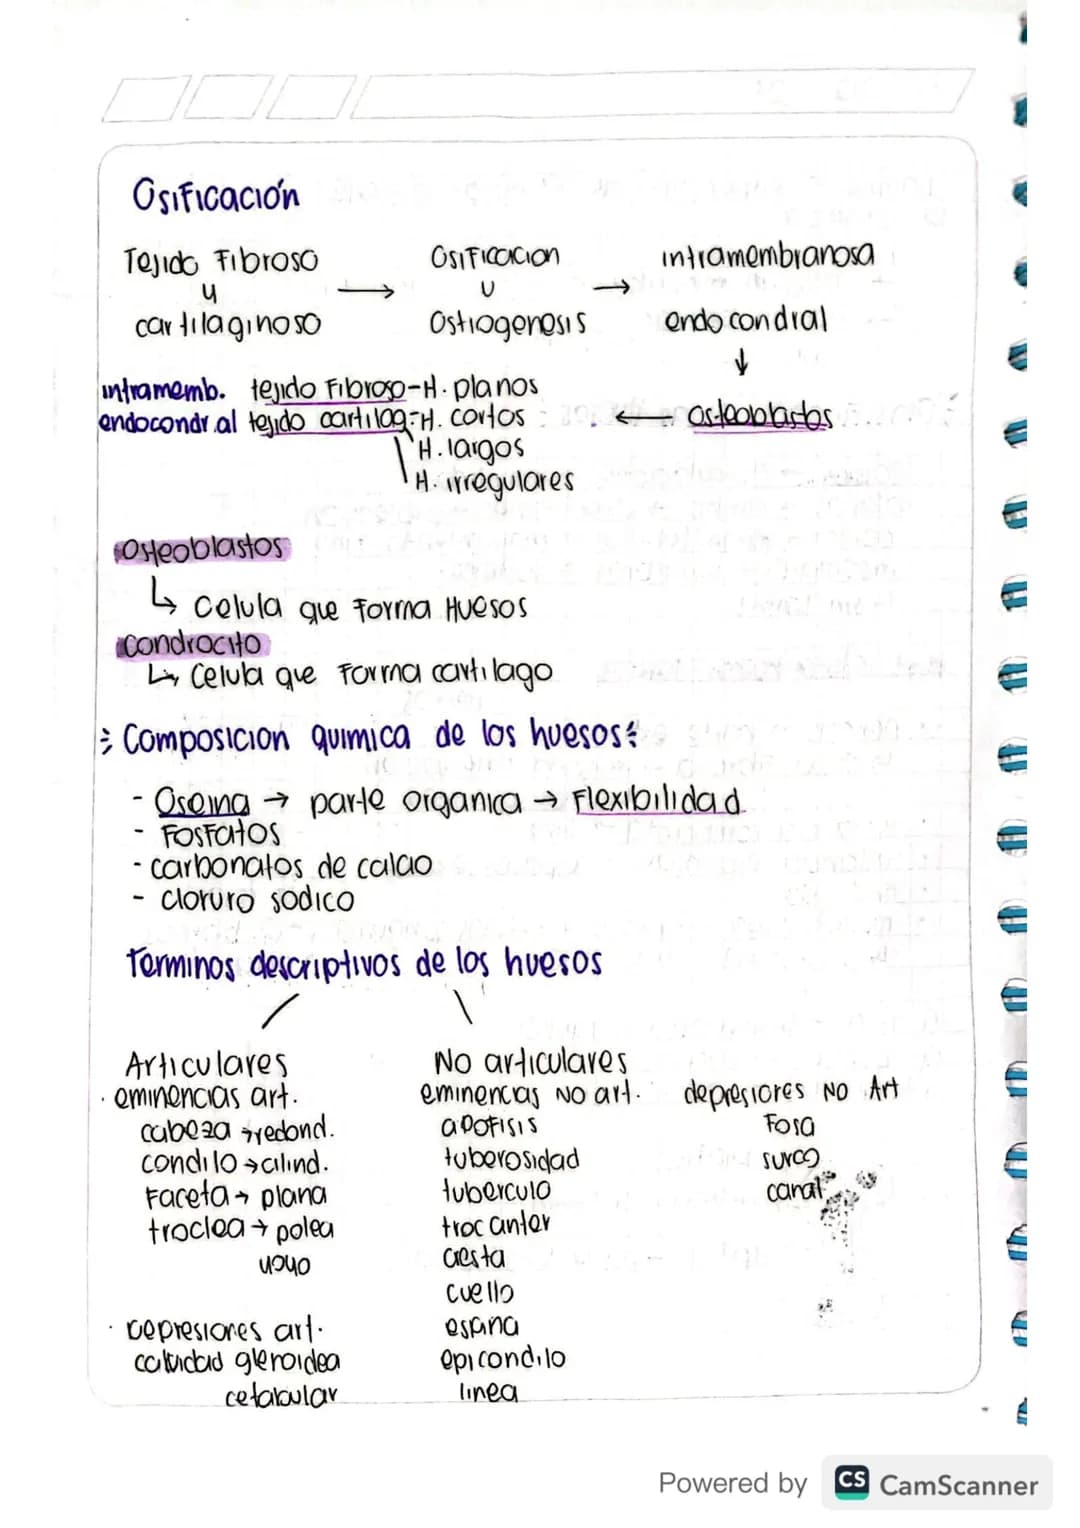 Osificación
Tejido Fibroso
y
cartilaginoso
→
Osificacion
u
Ostiogenesis
→
intramembranosa
endocondral
↓
osteoblastos
←
intramemb. tejido Fibroso-H. planos
endocondral tejido cartilag-H. cortos
H. largos
H. irregulares
Osteoblastos
↳ Celula que Forma Huesos
condrocito
↳ Celula que Forma cartilago
Composicion quimica de los huesos:
- Oseina → parte organica → Flexibilidad
- Fosfatos
- carbonatos de calcio
- cloruro sodico
Terminos descriptivos de los huesos
Articulares
· eminencias art.
cabeza → redond.
condilo → cilind.
Faceta → plana
troclea → polea
· Depresiones art.
cavidad gleroidea
No articulares
eminencias No art.
apofisis
tuberosidad
tuberculo
trocanter
cresta
cuello
espina
epicondilo
linea
depresiones No Art
Fosa
surco
canal
Powered by CS CamScanner